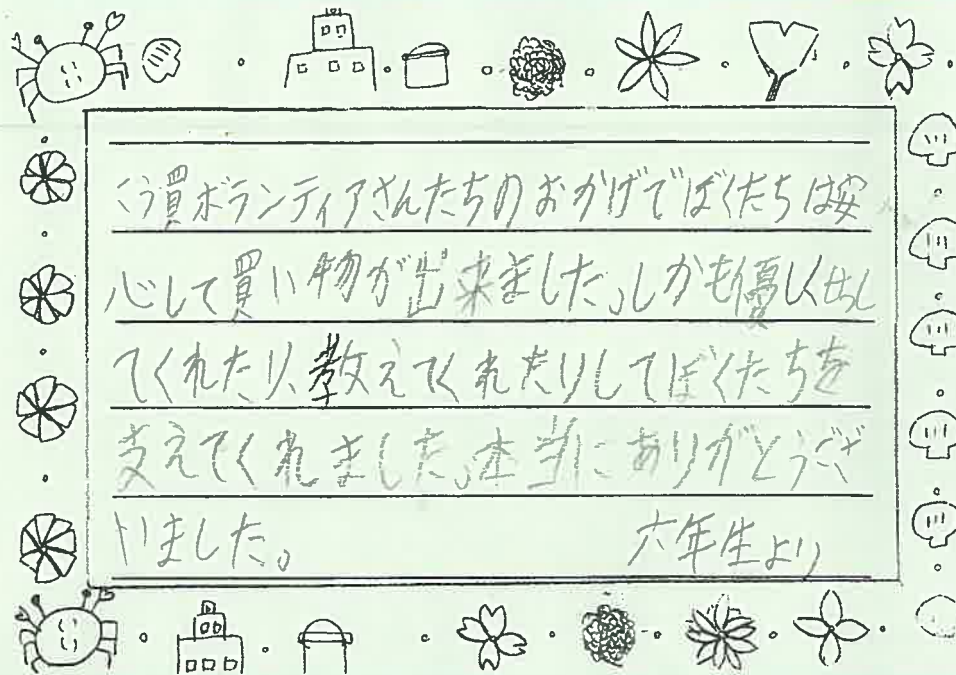 こう買ボランティアさんたちのおかげでぼくたちは安
心して買い物が出来ました。しかも優しく出し
てくれたり、教えてくれたりしてぼくたちを
支えてくれました。本当にありがとうござ
いました。 六年生より